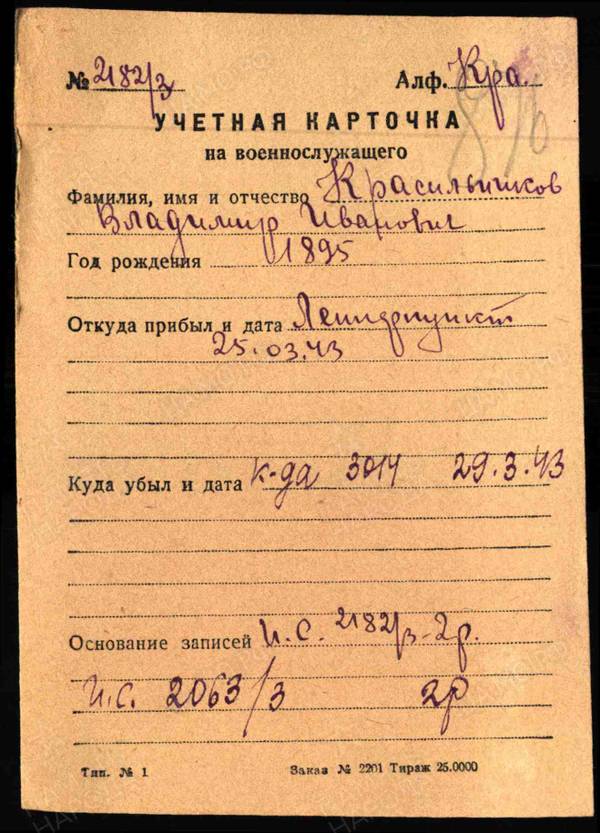 № 2182/3 Алф. Кра.
УЧЕТНАЯ КАРТОЧКА
на военнослужащего
Фамилия, имя и отчество Красильников
Владимир Иванович
Год рождения 1895
Откуда прибыл и дата
25.03.43
Куда убыл и дата к-да 3014 29.3.43
Основание записей И.С. 2182/3-2р.
И.С. 2063/3 2р
Тип. № 1 Заказ № 2201 Тираж 25.0000